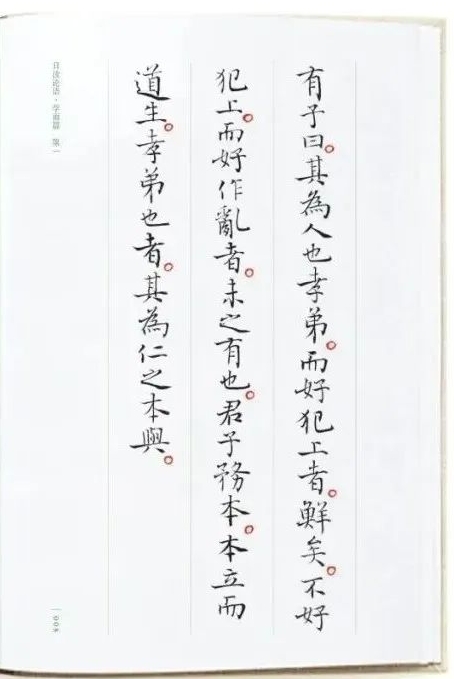 有子曰。其為人也孝弟。而好犯上者。鮮矣。不好
犯上。而好作亂者。未之有也。君子務本。本立而
道生。孝弟也者。其為仁之本與。
日读论语·学而篇 第一
008